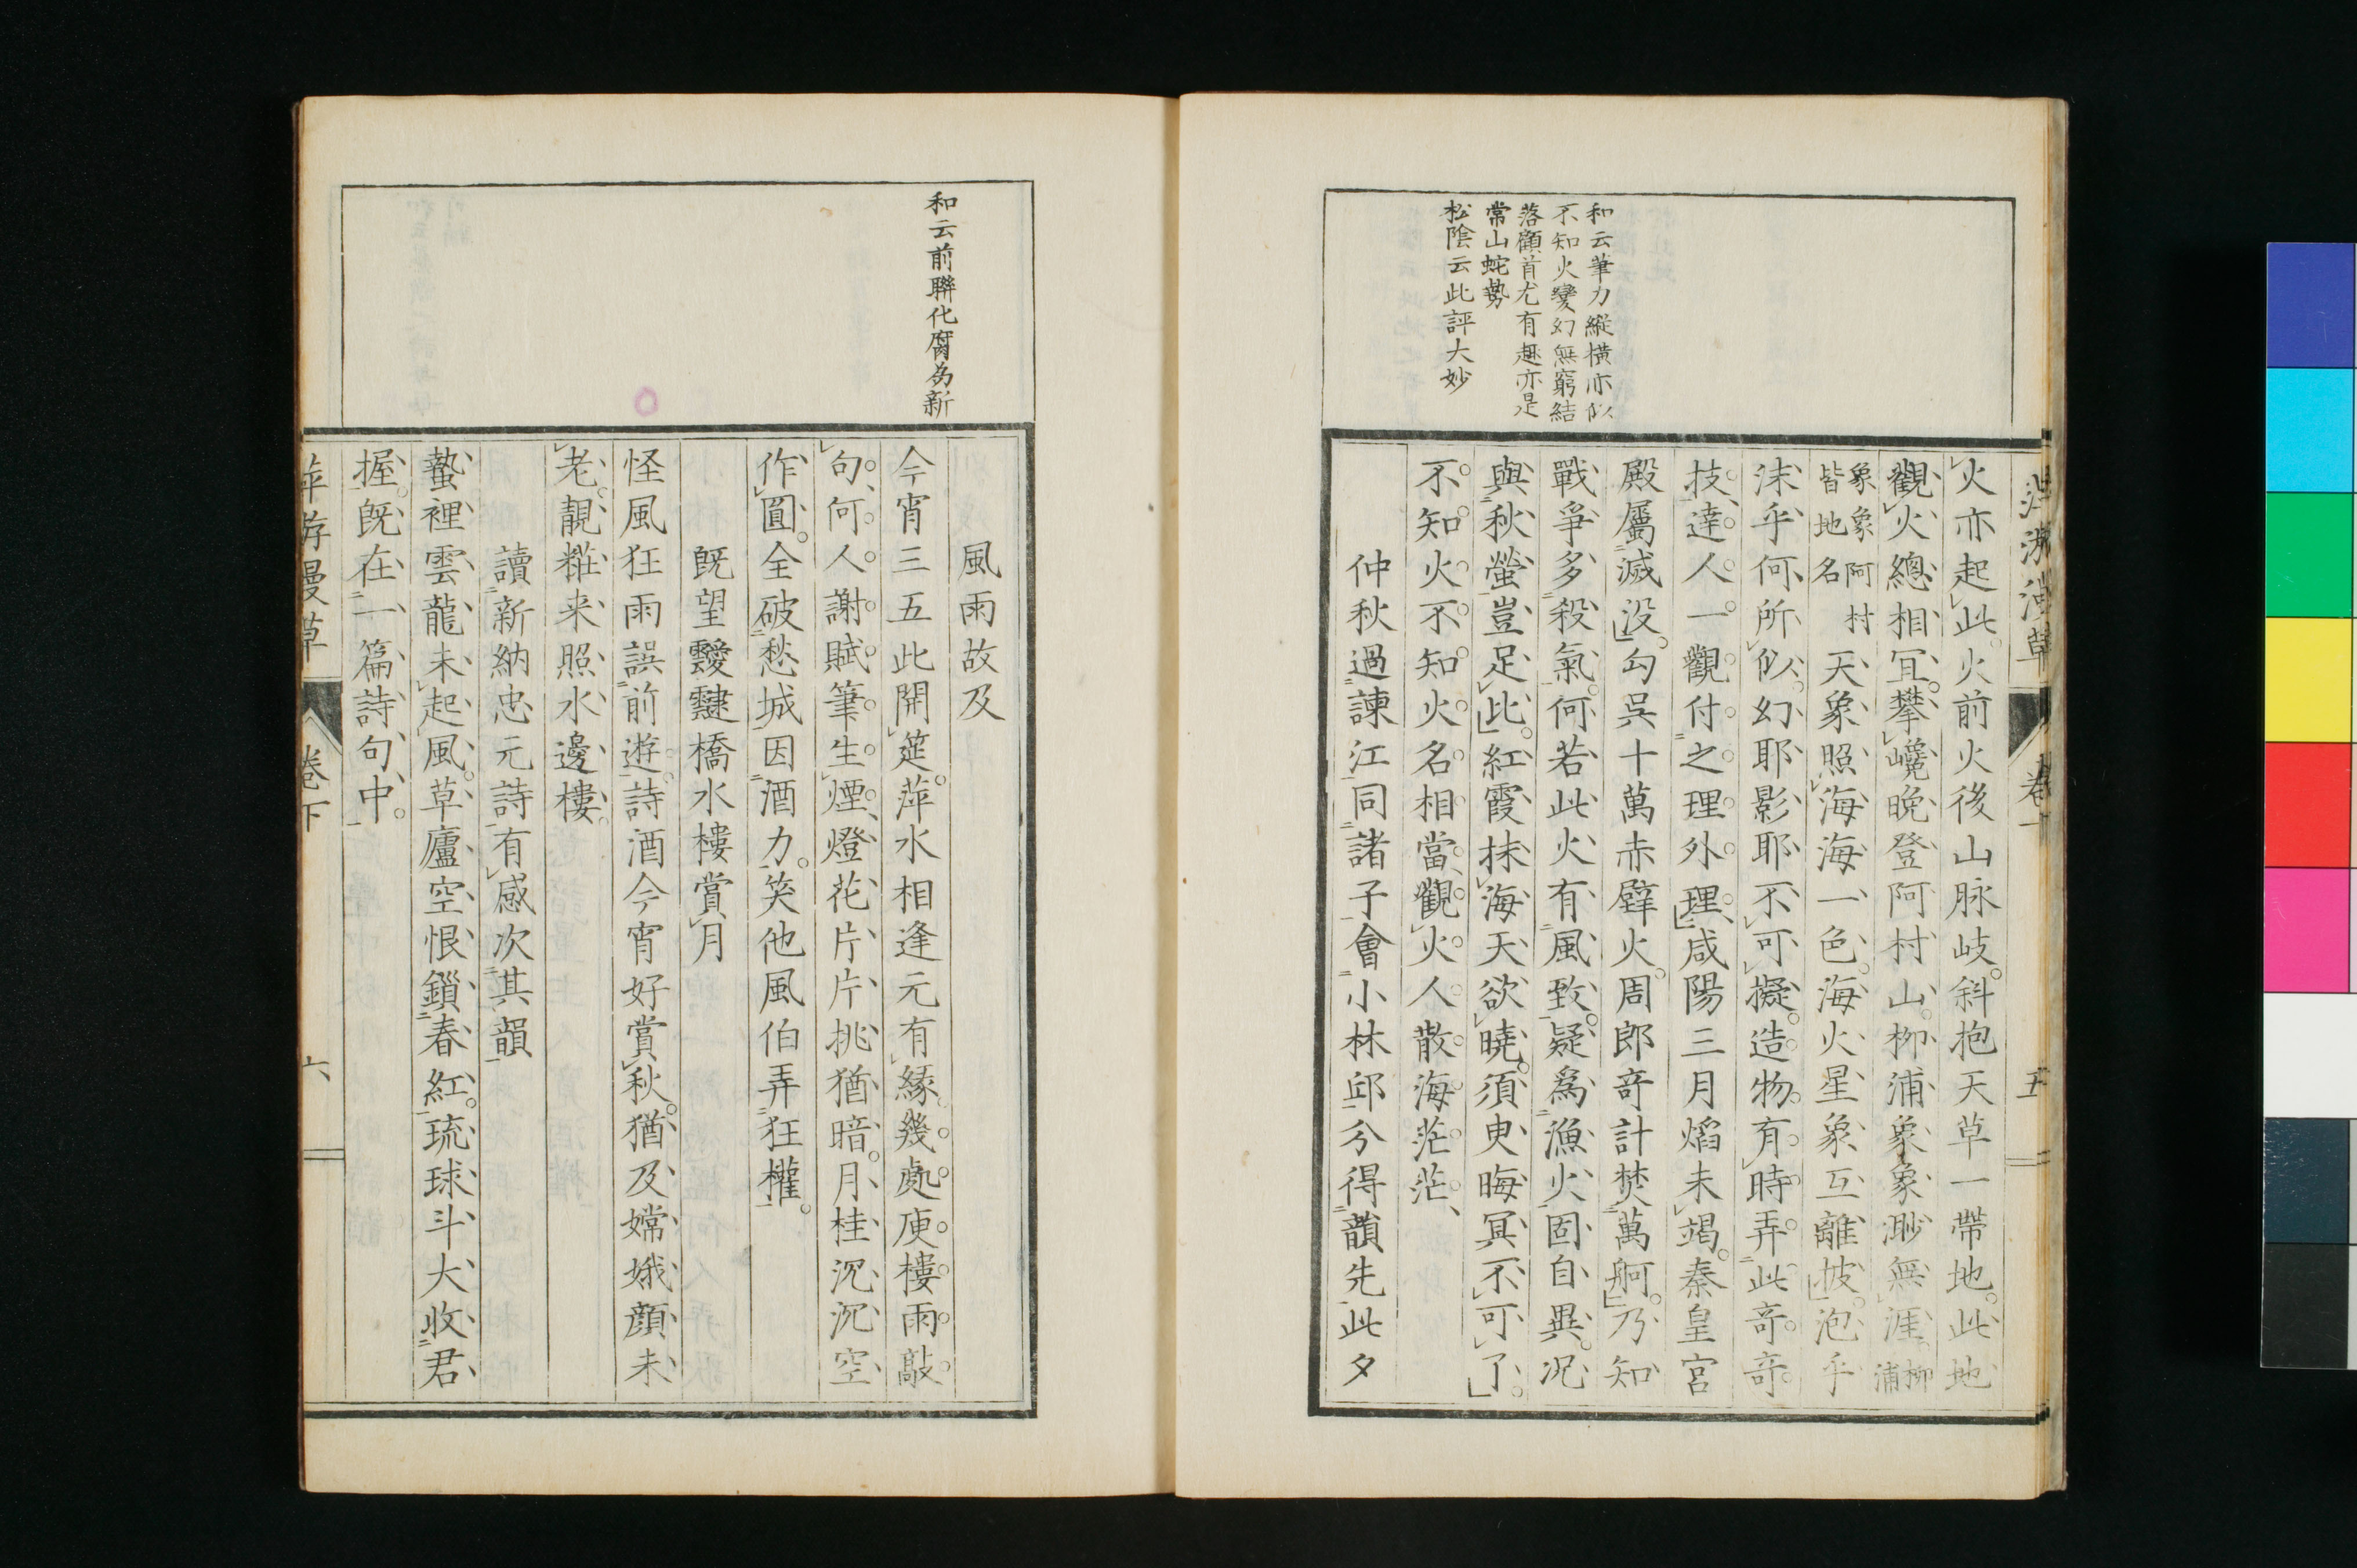 和云筆力縱橫亦似
不知火變幻無窮結
落顧首尤有趣亦是
常山蛇勢
松陰云此評大妙
火亦起此火前火後山脉岐斜抱天草一帶地此地
觀火總相宜攀巉晩登阿村山柳浦象象渺無涯柳浦
象象阿村
皆地名
天象照海海一色海火星象互離披泡乎
沫乎何所似幻耶影耶不可擬造物有時弄此竒竒
技達人一觀付之理外理咸陽三月焰未竭秦皇宮
殿屬滅没勾吳十萬赤壁火周郎竒計焚萬舸乃知
戰爭多殺氣何若此火有風致疑爲漁火固自異况
與秋螢豈足比紅霞抹海天欲曉須臾晦冥不可了
不知火不知火名相當觀火人散海茫茫
仲秋過諫江同諸子會小林邱分得韻先此夕
卷
五
和云前聯化腐為新
風雨故及
今宵三五此開筵萍水相逢元有縁幾處庾樓雨敲
句何人謝賦筆生煙燈花片片挑猶暗月桂沉沉空
作圓全破愁城因酒力笑他風伯弄狂權
既望靉靆橋水樓賞月
怪風狂雨誤前遊詩酒今宵好賞秋猶及嫦娥顔未
老靚糚来照水邊樓
讀新納忠元詩有感次其韻
蟄裡雲龍未起風草廬空恨鎖春紅琉球斗大收君
握既在一篇詩句中
萍游漫草
卷下
六